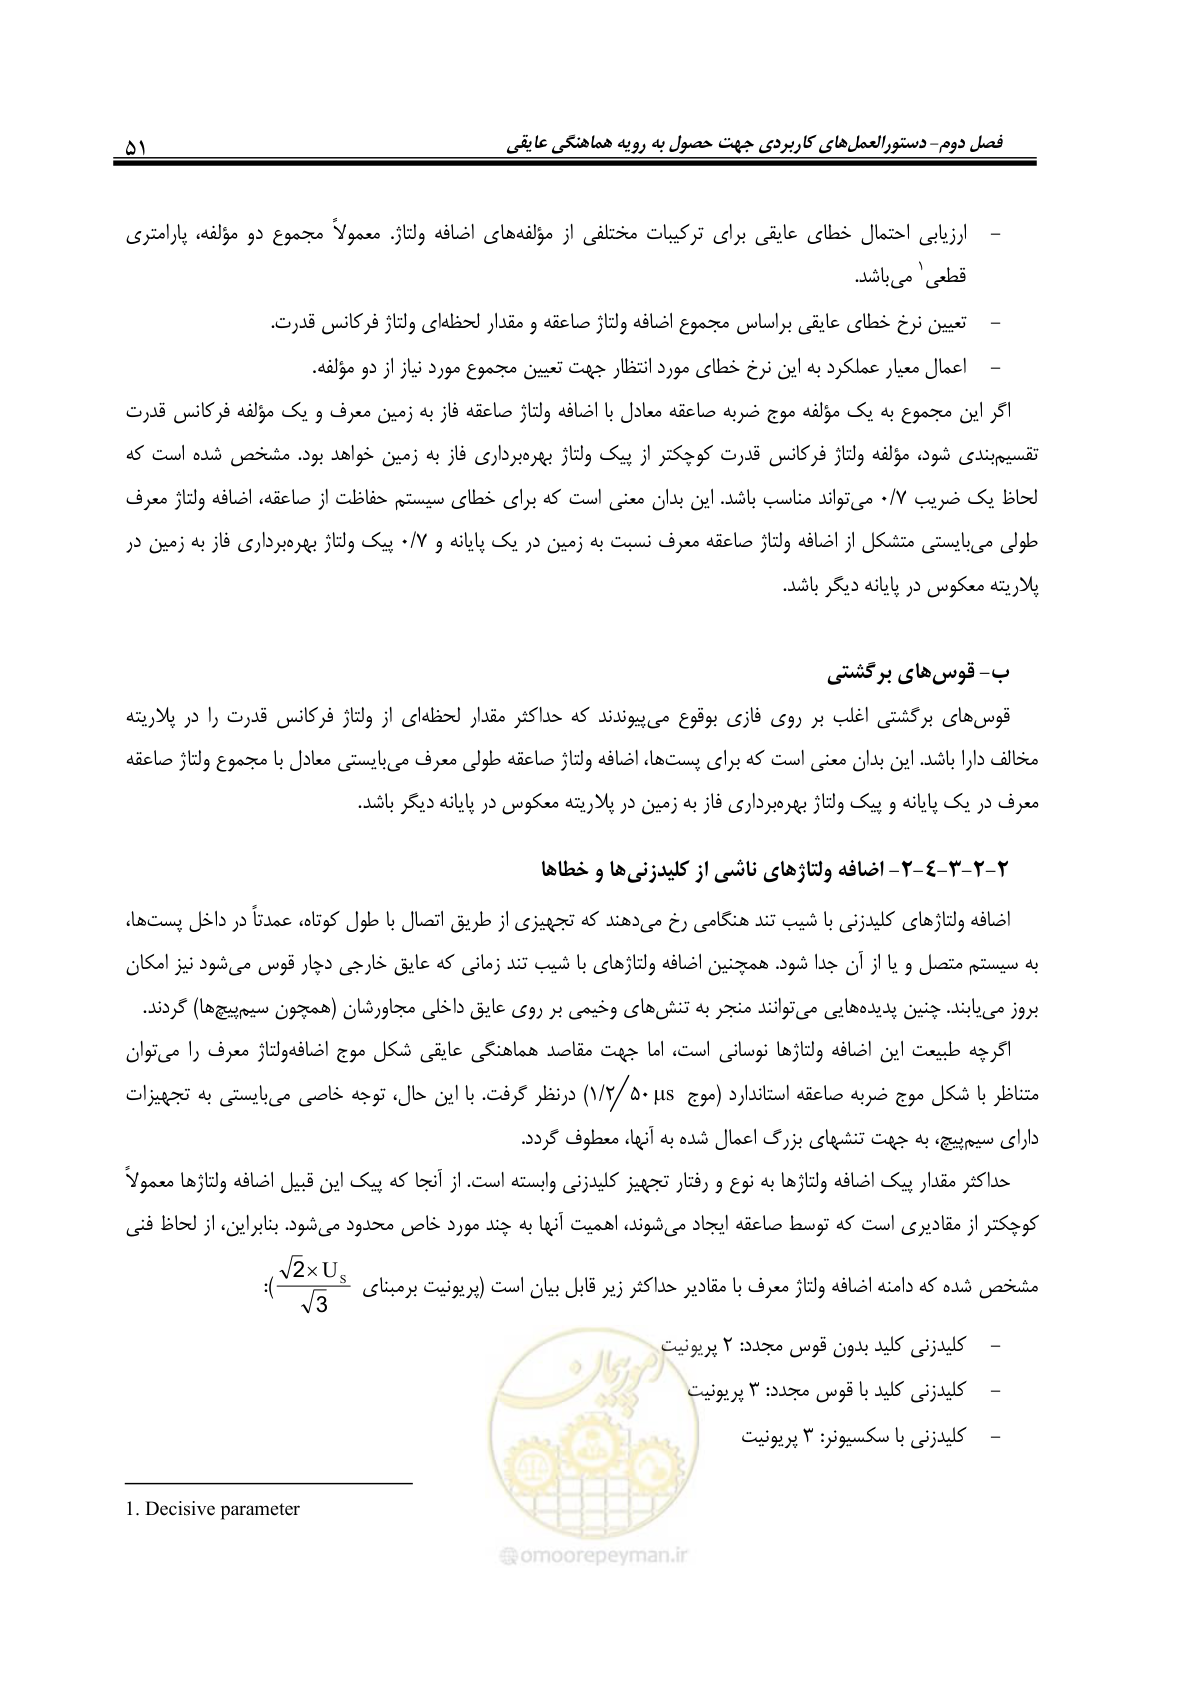 فصل دوم– دستورالعمل‌های کاربردی جهت حصول به رویه هماهنگی عایقی
۵۱
– ارزیابی احتمال خطای عایقی برای ترکیبات مختلفی از مؤلفه‌های اضافه ولتاژ. معمولاً مجموع دو مؤلفه، پارامتری
قطعی۱ می‌باشد.
– تعیین نرخ خطای عایقی براساس مجموع اضافه ولتاژ صاعقه و مقدار لحظه‌ای ولتاژ فرکانس قدرت.
– اعمال معیار عملکرد به این نرخ خطای مورد انتظار جهت تعیین مجموع مورد نیاز از دو مؤلفه.
اگر این مجموع به یک مؤلفه موج ضربه صاعقه معادل با اضافه ولتاژ صاعقه فاز به زمین معرف و یک مؤلفه فرکانس قدرت
تقسیم‌بندی شود، مؤلفه ولتاژ فرکانس قدرت کوچکتر از پیک ولتاژ بهره‌برداری فاز به زمین خواهد بود. مشخص شده است که
لحاظ یک ضریب ۰/۷ می‌تواند مناسب باشد. این بدان معنی است که برای خطای سیستم حفاظت از صاعقه، اضافه ولتاژ معرف
طولی می‌بایستی متشکل از اضافه ولتاژ صاعقه معرف نسبت به زمین در یک پایانه و ۰/۷ پیک ولتاژ بهره‌برداری فاز به زمین در
پلاریته معکوس در پایانه دیگر باشد.
ب– قوس‌های برگشتی
قوس‌های برگشتی اغلب بر روی فازی بوقوع می‌پیوندند که حداکثر مقدار لحظه‌ای از ولتاژ فرکانس قدرت را در پلاریته
مخالف دارا باشد. این بدان معنی است که برای پست‌ها، اضافه ولتاژ صاعقه طولی معرف می‌بایستی معادل با مجموع ولتاژ صاعقه
معرف در یک پایانه و پیک ولتاژ بهره‌برداری فاز به زمین در پلاریته معکوس در پایانه دیگر باشد.
۲-۲-۳-۴-۲- اضافه ولتاژهای ناشی از کلیدزنی‌ها و خطاها
اضافه ولتاژهای کلیدزنی با شیب تند هنگامی رخ می‌دهند که تجهیزی از طریق اتصال با طول کوتاه، عمدتاً در داخل پست‌ها،
به سیستم متصل و یا از آن جدا شود. همچنین اضافه ولتاژهای با شیب تند زمانی که عایق خارجی دچار قوس می‌شود نیز امکان
بروز می‌یابند. چنین پدیده‌هایی می‌توانند منجر به تنش‌های وخیمی بر روی عایق داخلی مجاورشان (همچون سیم‌پیچ‌ها) گردند.
اگرچه طبیعت این اضافه ولتاژها نوسانی است، اما جهت مقاصد هماهنگی عایقی شکل موج اضافه‌ولتاژ معرف را می‌توان
متناظر با شکل موج ضربه صاعقه استاندارد (موج ۱/۲/۵۰ μs) درنظر گرفت. با این حال، توجه خاصی می‌بایستی به تجهیزات
دارای سیم‌پیچ، به جهت تنشهای بزرگ اعمال شده به آنها، معطوف گردد.
حداکثر مقدار پیک اضافه ولتاژها به نوع و رفتار تجهیز کلیدزنی وابسته است. از آنجا که پیک این قبیل اضافه ولتاژها معمولاً
کوچکتر از مقادیری است که توسط صاعقه ایجاد می‌شوند، اهمیت آنها به چند مورد خاص محدود می‌شود. بنابراین، از لحاظ فنی
مشخص شده که دامنه اضافه ولتاژ معرف با مقادیر حداکثر زیر قابل بیان است (پریونیت برمبنای √2×Us/√3):
– کلیدزنی کلید بدون قوس مجدد: ۲ پریونیت
– کلیدزنی کلید با قوس مجدد: ۳ پریونیت
– کلیدزنی با سکسیونر: ۳ پریونیت
1. Decisive parameter
امور پیمان
@omoorepeyman.ir